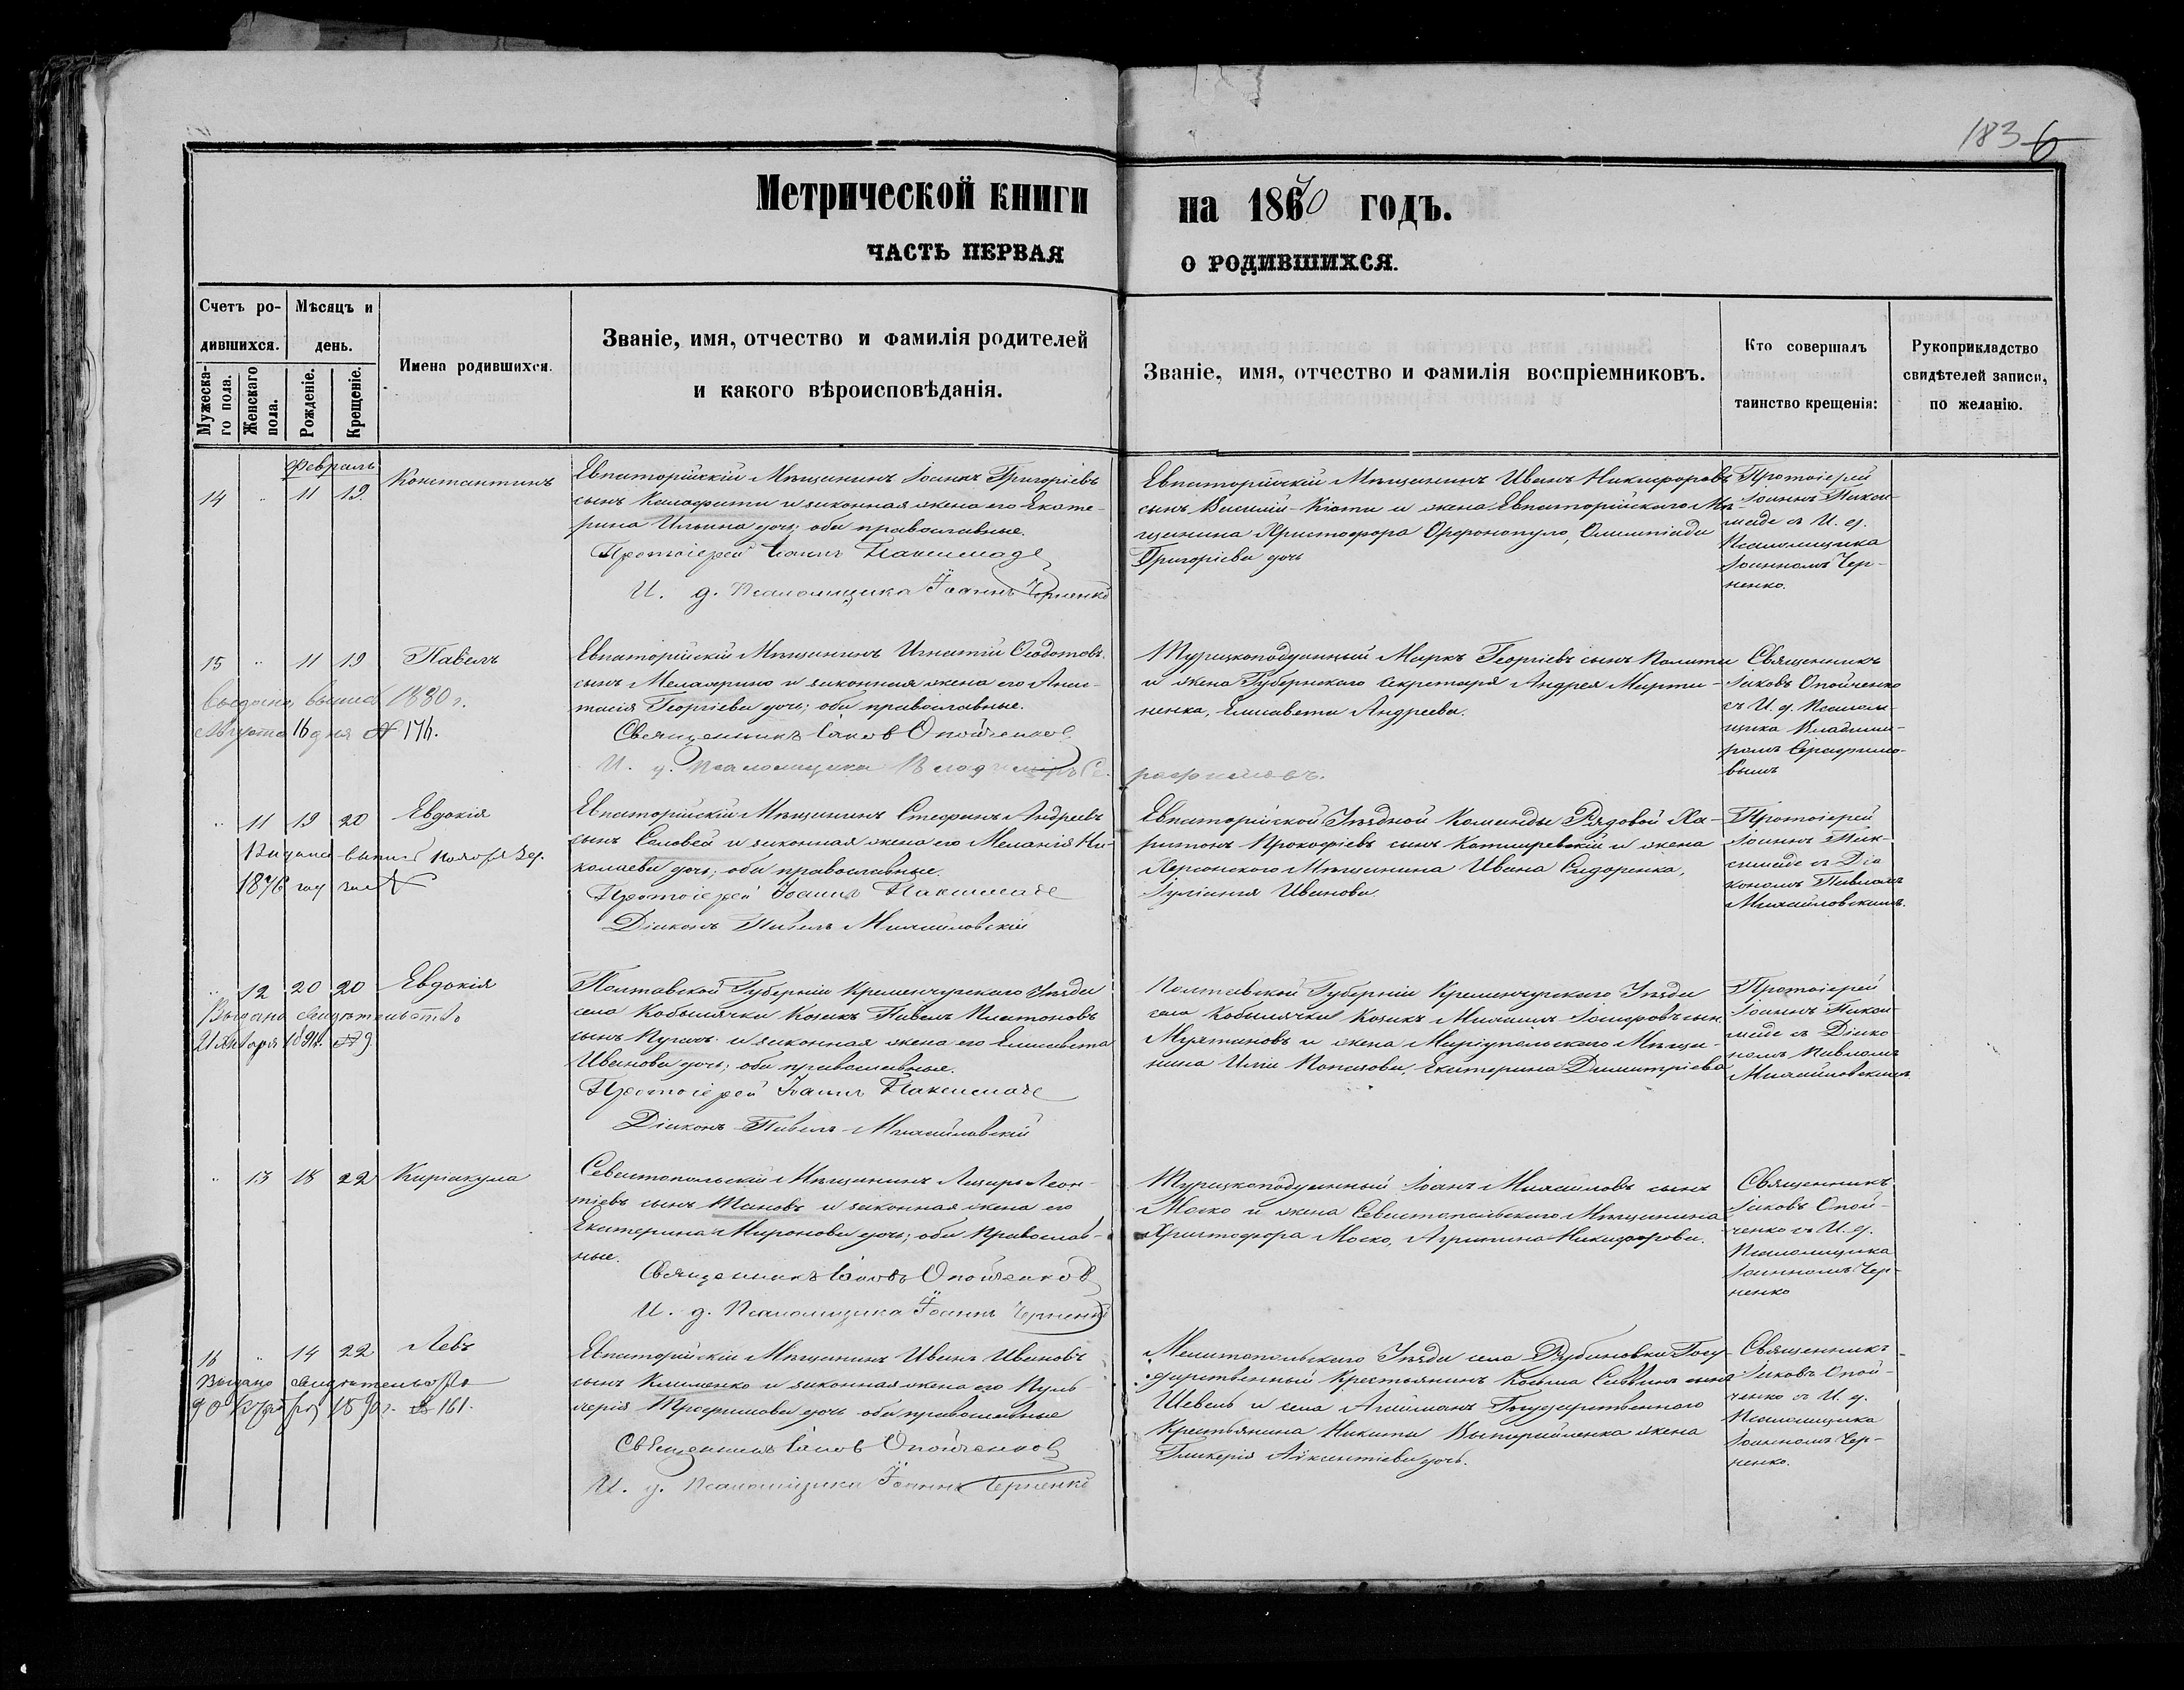 183 6
Метрической книги на 1870 годъ.
ЧАСТЬ ПЕРВАЯ О РОДИВШИХСЯ.
Счетъ родившихся.
Мужескаго пола.
Женскаго пола.
Мѣсяцъ и день.
Рожденіе.
Крещеніе.
Имена родившихся.
Званіе, имя, отчество и фамилія родителей
и какого вѣроисповѣданія.
Званіе, имя, отчество и фамилія воспріемниковъ.
Кто совершалъ
таинство крещенія:
Рукоприкладство
свидѣтелей записи,
по желанію.
Февраль
14 " 11 19 Константинъ
Евпаторійскій Мѣщанинъ Іоаннъ Григоріевъ
сынъ Калафати и законная жена его Екате-
рина Ильина дочь; оба православные.
Протоіерей Іоаннъ Пакселаде
И. д. Псаломщика Іоаннъ Черненко
Евпаторійскій Мѣщанинъ Иванъ Никифоровъ
сынъ и жена Евпаторійскаго Мѣ-
щанина Христофора Олимпіада
Григоріева дочь
Протоіерей
Іоаннъ
съ И. д.
Псаломщика
Іоанномъ Чер-
ненко.
15 " 11 19 Павелъ
1880 г.
Августа 16 дня № 176.
Евпаторійскій Мѣщанинъ Игнатій Ѳеодотовъ
сынъ и законная жена его Анас-
тасія Георгіева дочь; оба православные.
Священникъ Іаковъ Опойченковъ
И. д. Псаломщика Владиміръ Се-
рафимовъ.
Турецкоподданный Маркъ Георгіевъ сынъ
и жена Губернскаго Секретаря Андрея Марти-
ненка, Елисавета Андреева.
Священникъ
Іаковъ Опойченко
съ И. д. Псалом-
щика Владими-
ромъ Серафимо-
вымъ
" 11 19 20 Евдокія
1876 год
Евпаторійскій Мѣщанинъ Стефанъ Андреевъ
сынъ Соловей и законная жена его Меланія Ни-
колаева дочь; оба православные.
Протоіерей Іоаннъ Пакселаде
Діаконъ Павелъ Михайловскій
Евпаторійской Уѣздной Команды Рядовой Ха-
ритонъ Прокофіевъ сынъ и жена
Херсонскаго Мѣщанина Ивана Сидоренка,
Іуліанія Иванова.
Протоіерей
Іоаннъ Пак-
селаде съ Діа
кономъ Павломъ
Михайловскимъ.
" 12 20 20 Евдокія
Выдано свидѣтельство
21 Января № 9
Полтавской Губерніи Кременчугскаго Уѣзда
села Кобылячки Козакъ Павелъ Платоновъ
сынъ и законная жена его Елисавета
Иванова дочь; оба православные.
Протоіерей Іоаннъ Пакселаде
Діаконъ Павелъ Михайловскій
Полтавской Губерніи Кременчугскаго Уѣзда
села Кобылячки Козакъ Михаилъ сынъ
и жена Маріупольскаго Мѣща-
нина Иліи Екатерина Димитріева
Протоіерей
Іоаннъ
съ Діако-
номъ Павломъ
Михайловскимъ
" 13 18 22 Киріакула
Севастопольскій Мѣщанинъ Лазарь Леон-
тіевъ сынъ и законная жена его
Екатерина Миронова дочь; оба Православ-
ные.
Священникъ Іаковъ Опойченковъ
И. д. Псаломщика Іоаннъ Черненко
Турецкоподданный Іоанъ Михайловъ сынъ
Моско и жена Севастопольскаго Мѣщанина
Христофора Моско, Агрипина Никифорова.
Священникъ
Іаковъ Опой-
ченко съ И. д.
Псаломщика
Іоанномъ Чер-
ненко
16 " 14 22 Левъ
Выдано свидѣтельство
№ 161.
Евпаторійскій Мѣщанинъ Иванъ Ивановъ
сынъ Клименко и законная жена его Пуль-
херія Трофимова дочь оба православные
Священникъ Іаковъ Опойченковъ
И. д. Псаломщика Іоаннъ Черненко
Мелитопольскаго Уѣзда села Рубановки Госу-
дарственный Крестьянинъ Косьма Саввинъ сынъ
Шевель и села Агайманъ Государственнаго
Крестьянина Никиты жена
Гликерія дочь.
Священникъ
Іаковъ Опой-
ченко съ И. д.
Псаломщика
Іоанномъ Чер-
ненко.